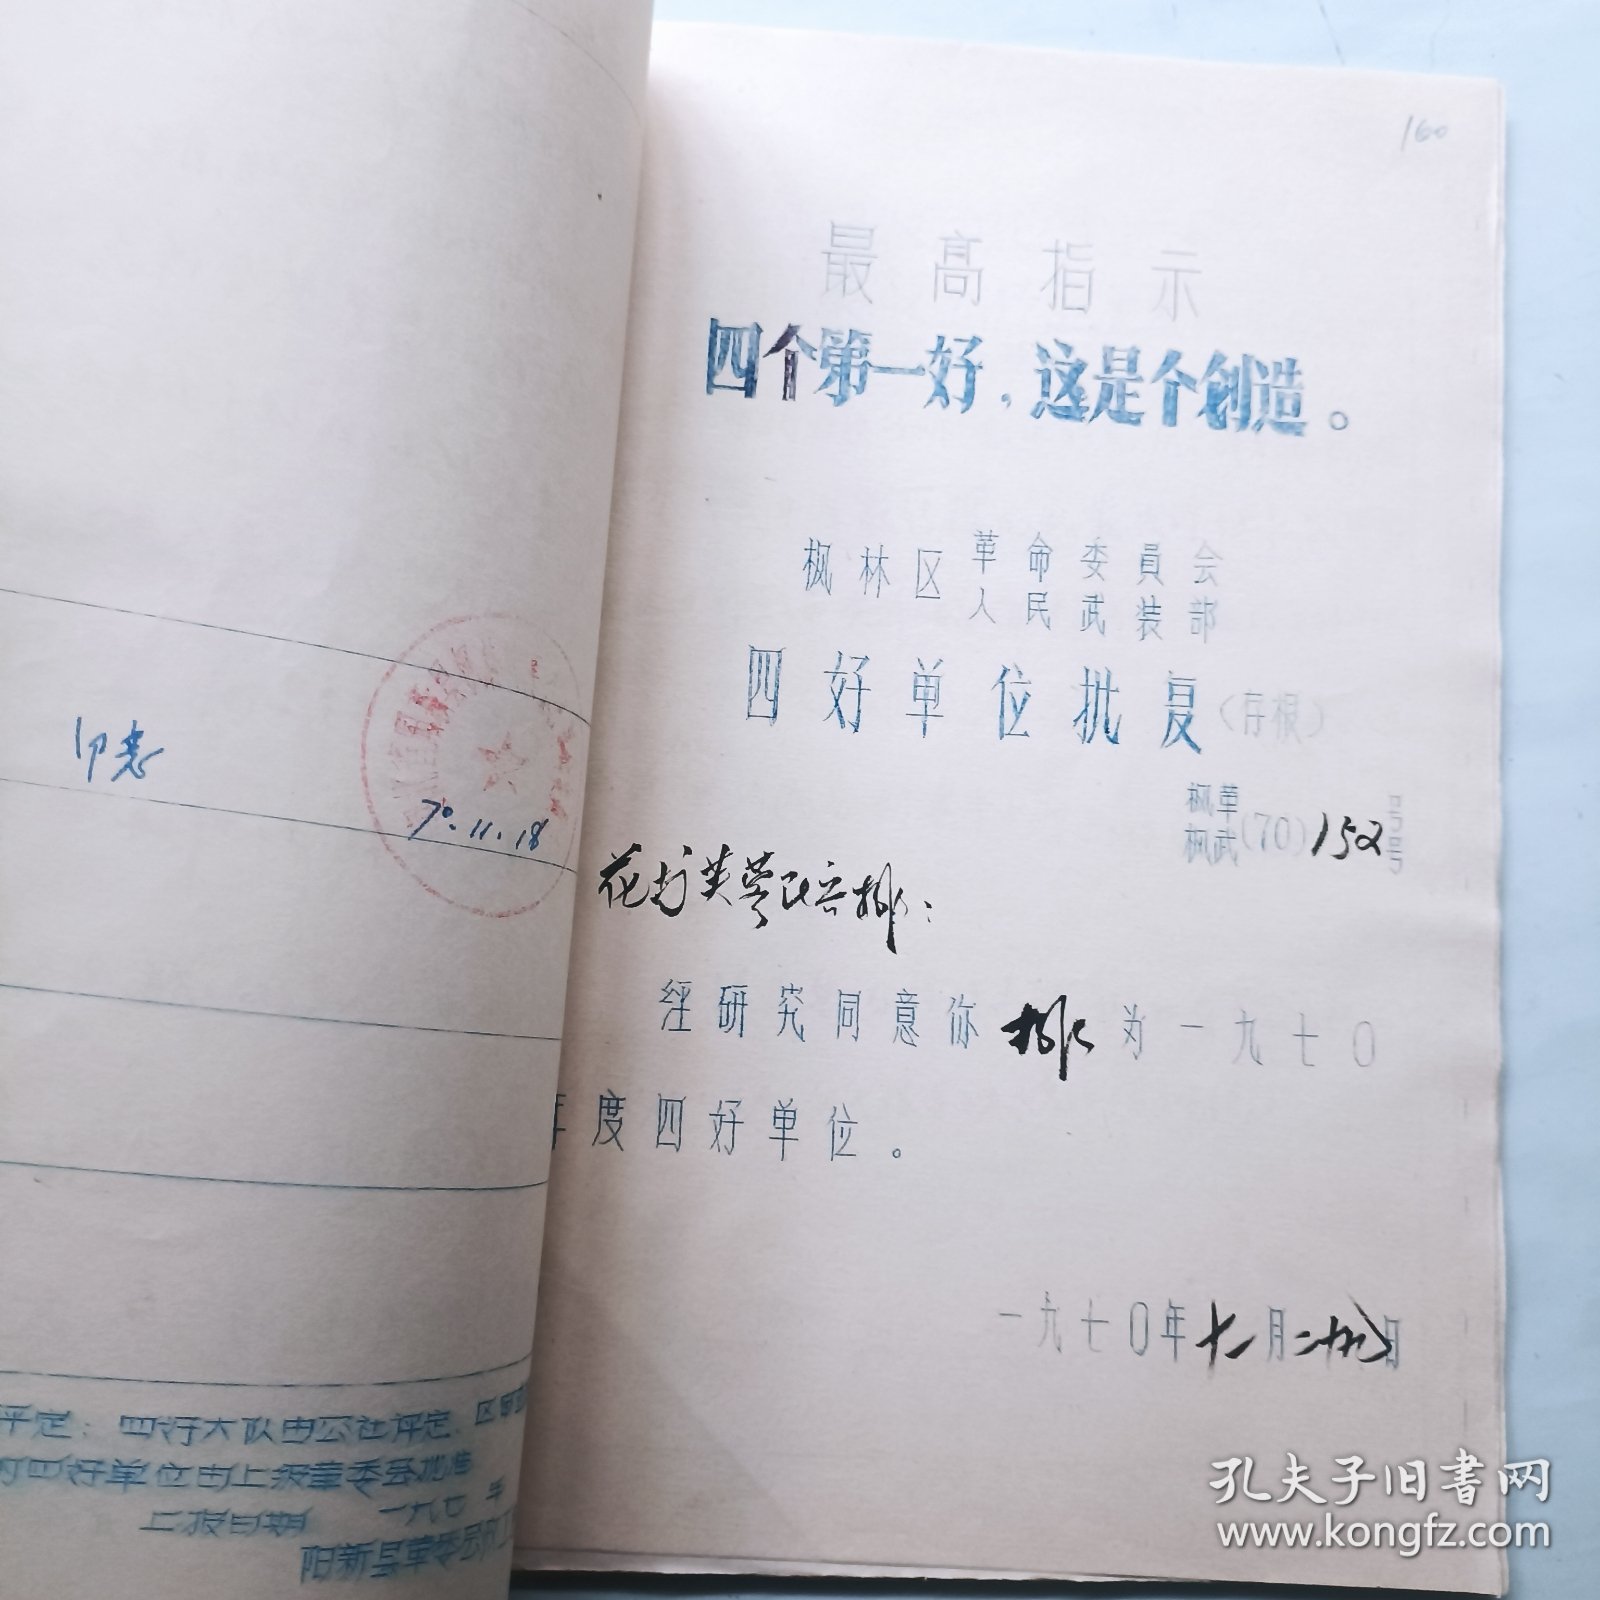 160
最高指示
四个第一好，这是个创造。
枫林区革命委員会
人民武装部
四好单位批复(存根)
枫革
枫武(70)152号
号
花打芙蓉民兵排：
经研究同意你排为一九七〇
年度四好单位。
一九七〇年十一月二十九日
同意
70.11.18
评定：四好大队由公社评定、区
四好单位由上级革委会批准
上报日期 一九七 年
阳新县革委会
孔夫子旧书网
www.kongfz.com